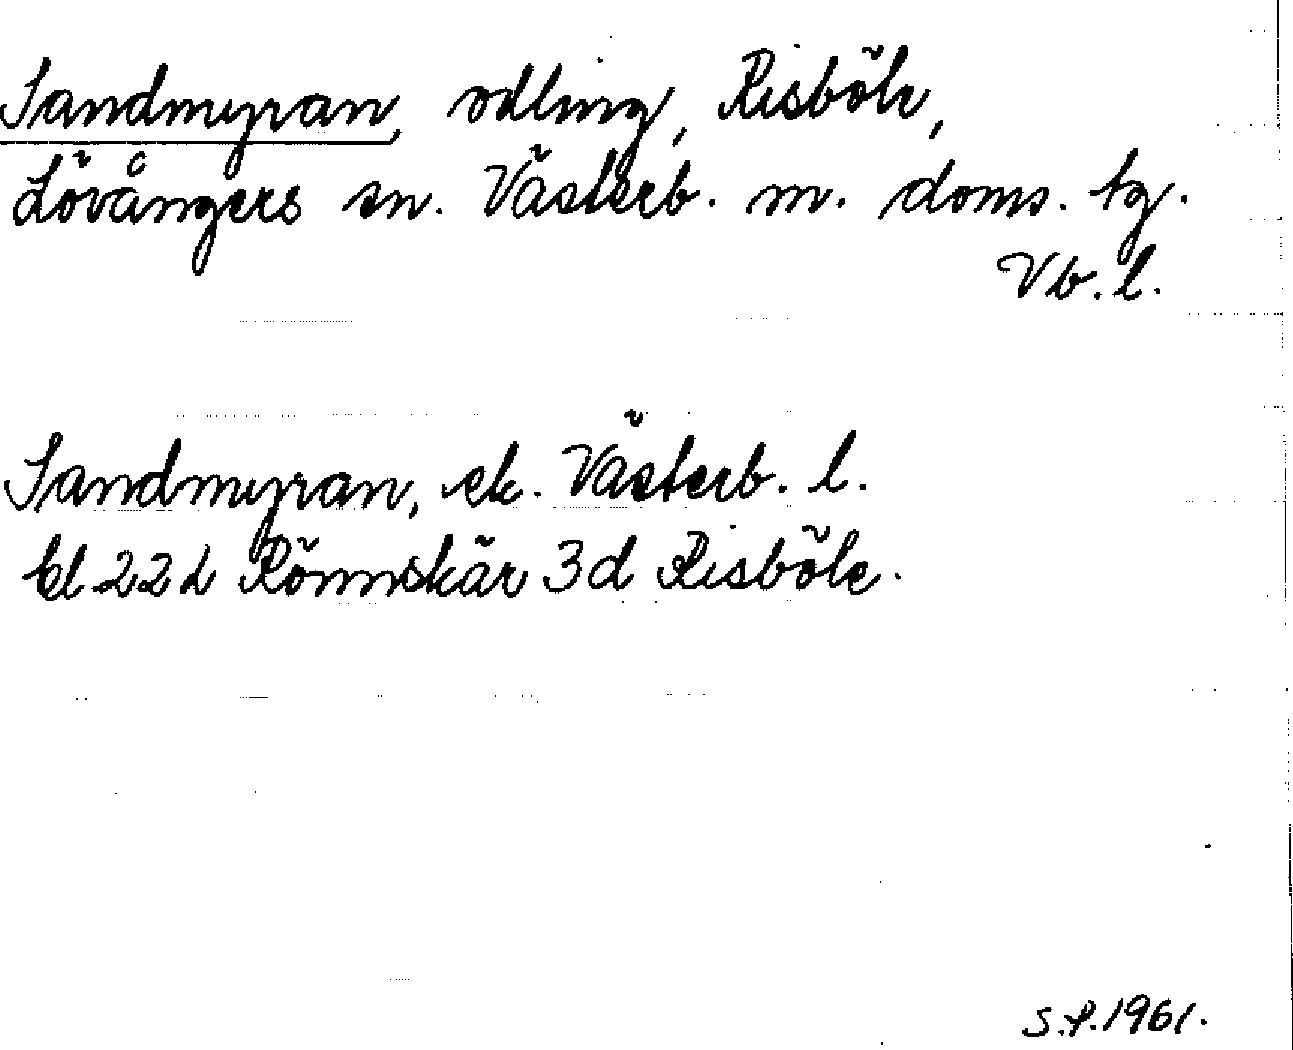 Sandmyran, odling, Risböle,
Lövångers sn. Västerb. m. doms. tg.
Vb. l.
Sandmyran, ek. Västerb. l.
bl 22 L Rönnskär 3d Risböle.
S.P. 1961.